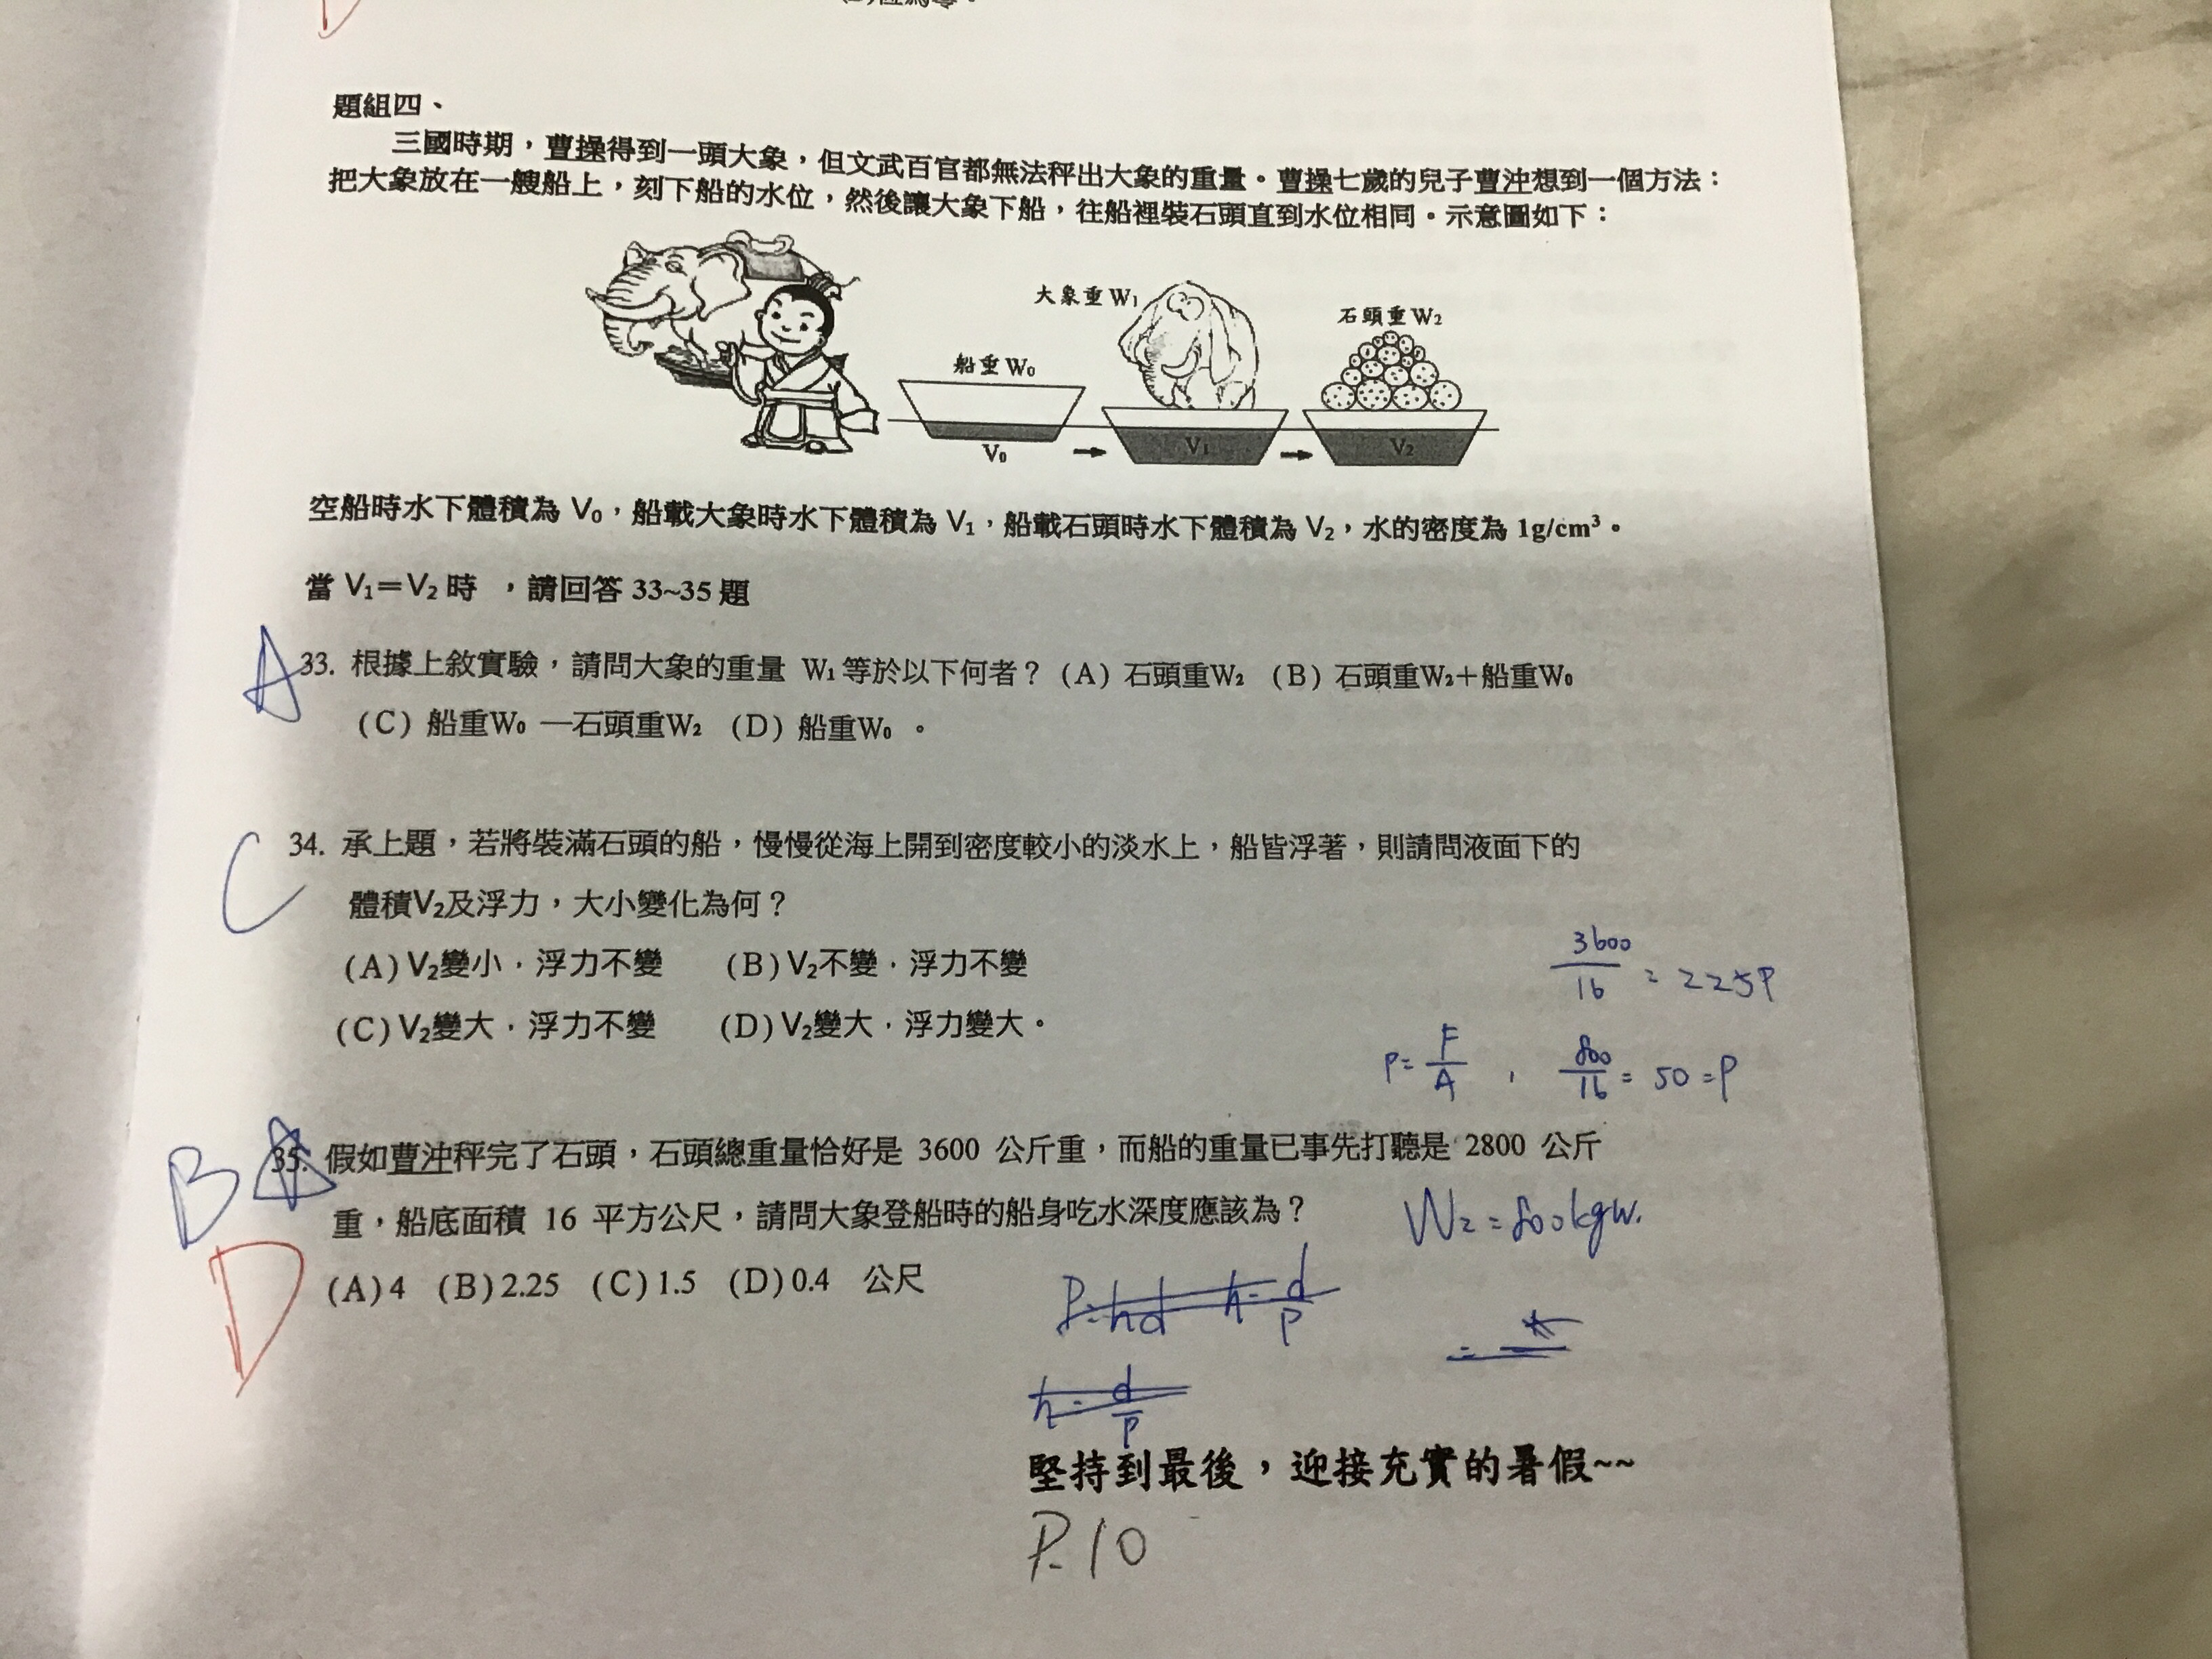 題組四、
三國時期，曹操得到一頭大象，但文武百官都無法秤出大象的重量。曹操七歲的兒子曹沖想到一個方法：
把大象放在一艘船上，刻下船的水位，然後讓大象下船，往船裡裝石頭直到水位相同。示意圖如下：
大象重W₁
石頭重W₂
船重W₀
V₀
V₁
V₂
空船時水下體積為 V₀，船載大象時水下體積為 V₁，船載石頭時水下體積為 V₂，水的密度為 1g/cm³。
當 V₁＝V₂ 時 ，請回答 33~35 題
A
33. 根據上敘實驗，請問大象的重量 W₁ 等於以下何者？(A) 石頭重W₂ (B) 石頭重W₂＋船重W₀
(C) 船重W₀ —石頭重W₂ (D) 船重W₀ 。
C
34. 承上題，若將裝滿石頭的船，慢慢從海上開到密度較小的淡水上，船皆浮著，則請問液面下的
體積V₂及浮力，大小變化為何？
(A) V₂變小，浮力不變 (B) V₂不變，浮力不變
(C) V₂變大，浮力不變 (D) V₂變大，浮力變大。
3600/16 = 225P
P = F/A , 800/16 = 50 = P
B A
35. 假如曹沖秤完了石頭，石頭總重量恰好是 3600 公斤重，而船的重量已事先打聽是 2800 公斤
重，船底面積 16 平方公尺，請問大象登船時的船身吃水深度應該為？
W₂ = 800kgw.
D
(A) 4 (B) 2.25 (C) 1.5 (D) 0.4 公尺
P=hd h=d/P
h=d/P
堅持到最後，迎接充實的暑假~~
P.10